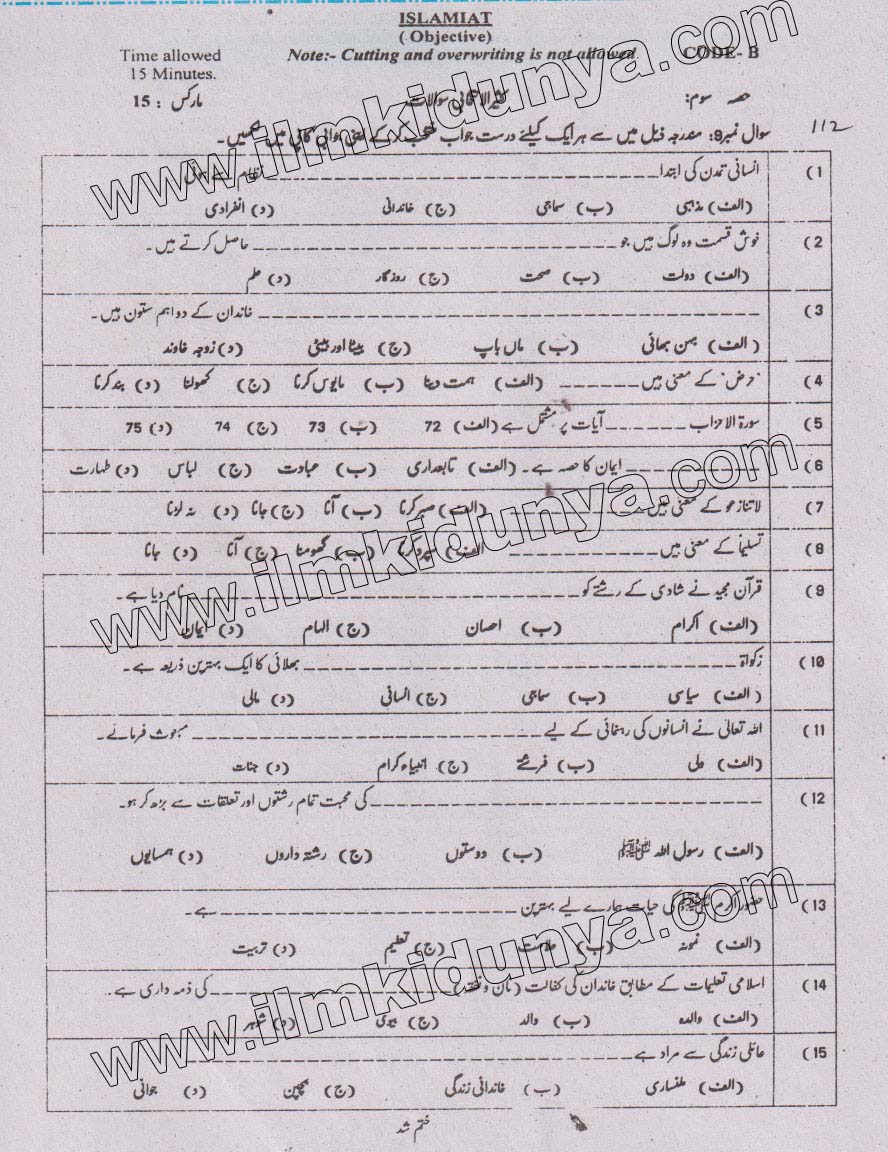 ISLAMIAT
( Objective)
Time allowed
15 Minutes.
Note:- Cutting and overwriting is not allowed.
CODE- B
حصہ سوم: کثیر الانتخابی سوالات
مارکس : 15
سوال نمبر9: مندرجہ ذیل میں سے ہر ایک کیلئے درست جواب منتخب کر کے اپنی جوابی کاپی میں لکھیں۔
112
(1 انسانی تمدن کی ابتدا ـــــــــــــــ نظام سے ہوئی
(الف) مذہبی (ب) سماجی (ج) خاندانی (د) انفرادی
(2 خوش قسمت وہ لوگ ہیں جو ـــــــــــــــ حاصل کرتے ہیں۔
(الف) دولت (ب) صحت (ج) روزگار (د) علم
(3 ـــــــــــــــ خاندان کے دو اہم ستون ہیں۔
(الف) بہن بھائی (ب) ماں باپ (ج) بیٹا اور بیٹی (د) زوجہ خاوند
(4 "حرض" کے معنی ہیں ـــــــــ (الف) ہمت دینا (ب) مایوس کرنا (ج) کھولنا (د) بند کرنا
(5 سورۃ الاحزاب ـــــــــ آیات پر مشتمل ہے (الف) 72 (ب) 73 (ج) 74 (د) 75
(6 ـــــــــ ایمان کا حصہ ہے۔ (الف) تابعداری (ب) عبادت (ج) لباس (د) طہارت
(7 لاتنازعو کے معنی ہیں ـــــــــ (الف) صبر کرنا (ب) آنا (ج) جانا (د) نہ لڑنا
(8 تسلیما کے معنی ہیں ـــــــــ (الف) سپرد کرنا (ب) گھومنا (ج) آنا (د) جانا
(9 قرآن مجید نے شادی کے رشتے کو ـــــــــــــــ نام دیا ہے۔
(الف) اکرام (ب) احسان (ج) الہام (د) ایمان
(10 زکواۃ ـــــــــــــــ بھلائی کا ایک بہترین ذریعہ ہے۔
(الف) سیاسی (ب) سماجی (ج) انسانی (د) مالی
(11 اللہ تعالیٰ نے انسانوں کی رہنمائی کے لیے ـــــــــــــــ مبعوث فرمائے۔
(الف) ولی (ب) فرشتے (ج) انبیاء کرام (د) جنات
(12 ـــــــــــــــ کی محبت تمام رشتوں اور تعلقات سے بڑھ کر ہو۔
(الف) رسول اللہ ﷺ (ب) دوستوں (ج) رشتہ داروں (د) ہمسایوں
(13 حضور اکرم ﷺ کی حیات ہمارے لیے بہترین ـــــــــــــــ ہے۔
(الف) نمونہ (ب) علامت (ج) تعلیم (د) تربیت
(14 اسلامی تعلیمات کے مطابق خاندان کی کفالت (نان و نفقہ) ـــــــــــــــ کی ذمہ داری ہے۔
(الف) والدہ (ب) والد (ج) بیوی (د) شوہر
(15 عائلی زندگی سے مراد ہے ـــــــــــــــ
(الف) ملنساری (ب) خاندانی زندگی (ج) بچپن (د) جوانی
ختم شد
www.ilmkidunya.com
www.ilmkidunya.com
www.ilmkidunya.com